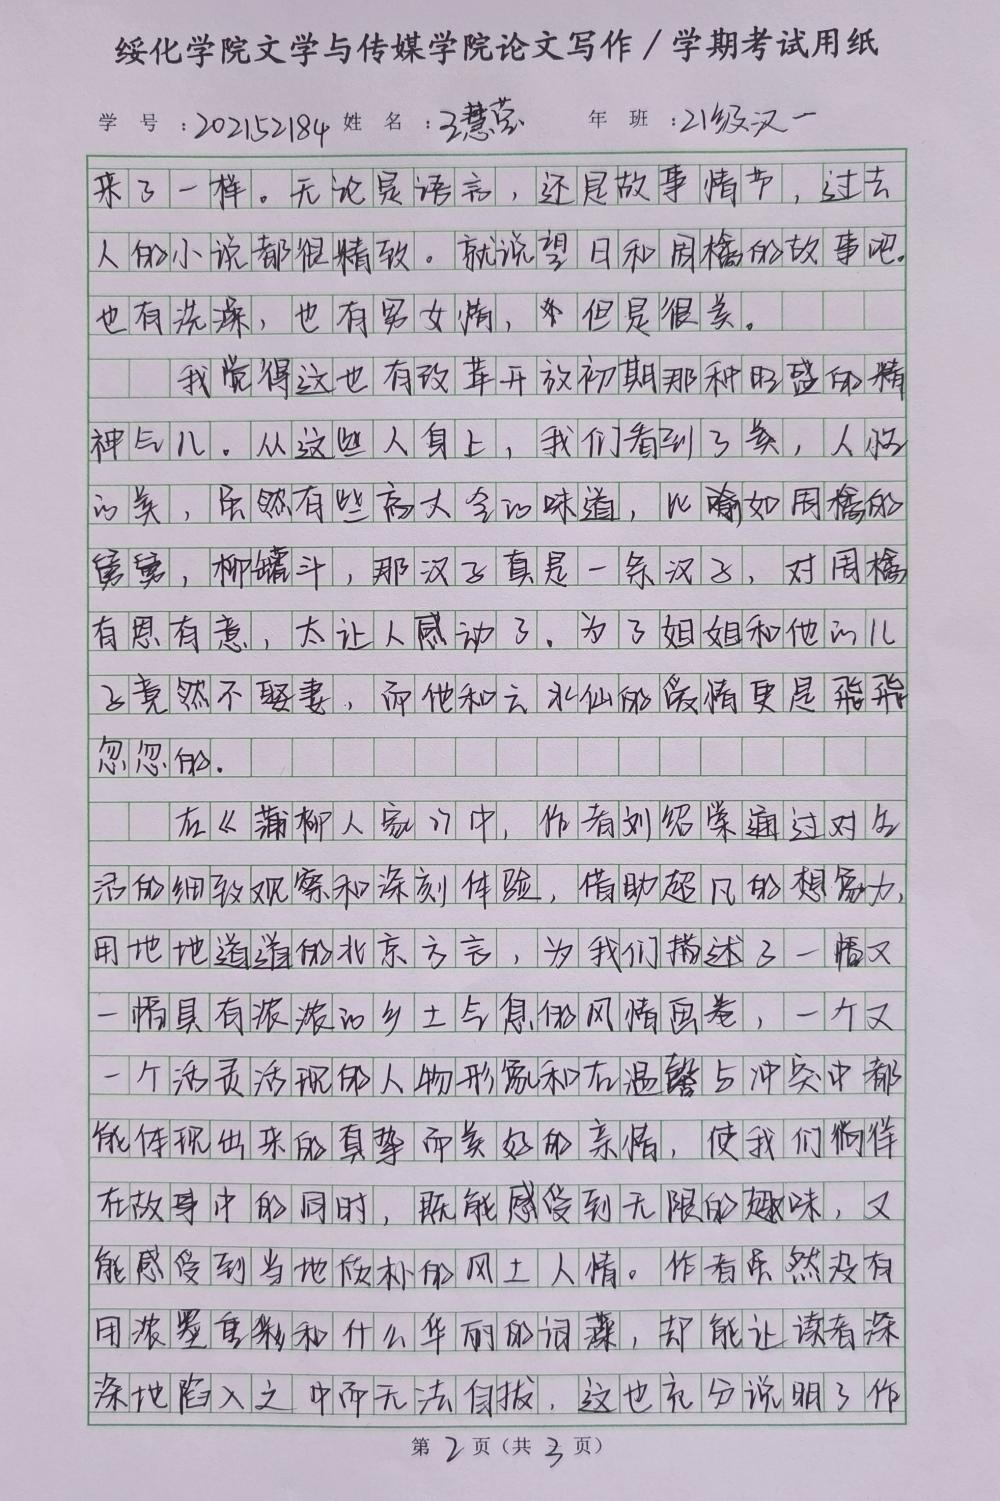 绥化学院文学与传媒学院论文写作/学期考试用纸
学号:202152184 姓名:王慧莹 年班:21级汉一
来了一样。无论是语言,还是故事情节,过去
人的小说都很精致。就说望日和周檎的故事吧。
也有洗澡,也有男女情,但是很美。
我觉得这也有改革开放初期那种旺盛的精
神气儿。从这些人身上,我们看到了美,人性
的美,虽然有些高大全的味道,比喻如周檎的
舅舅,柳罐斗,那汉子真是一条汉子,对周檎
有恩有意,太让人感动了。为了姐姐和他的儿
子竟然不娶妻,而他和云水仙的爱情更是飛飛
忽忽的。
在《蒲柳人家》中,作者刘绍棠通过对生
活的细致观察和深刻体验,借助超凡的想象力,
用地地道道的北京方言,为我们描述了一幅又
一幅具有浓浓的乡土气息的风情画卷,一个又
一个活灵活现的人物形象和在温馨与冲突中都
能体现出来的真挚而美好的亲情,使我们徜徉
在故事中的同时,既能感受到无限的趣味,又
能感受到当地质朴的风土人情。作者虽然没有
用浓墨重彩和什么华丽的词藻,却能让读者深
深地陷入之中而无法自拔,这也充分说明了作
第2页(共3页)